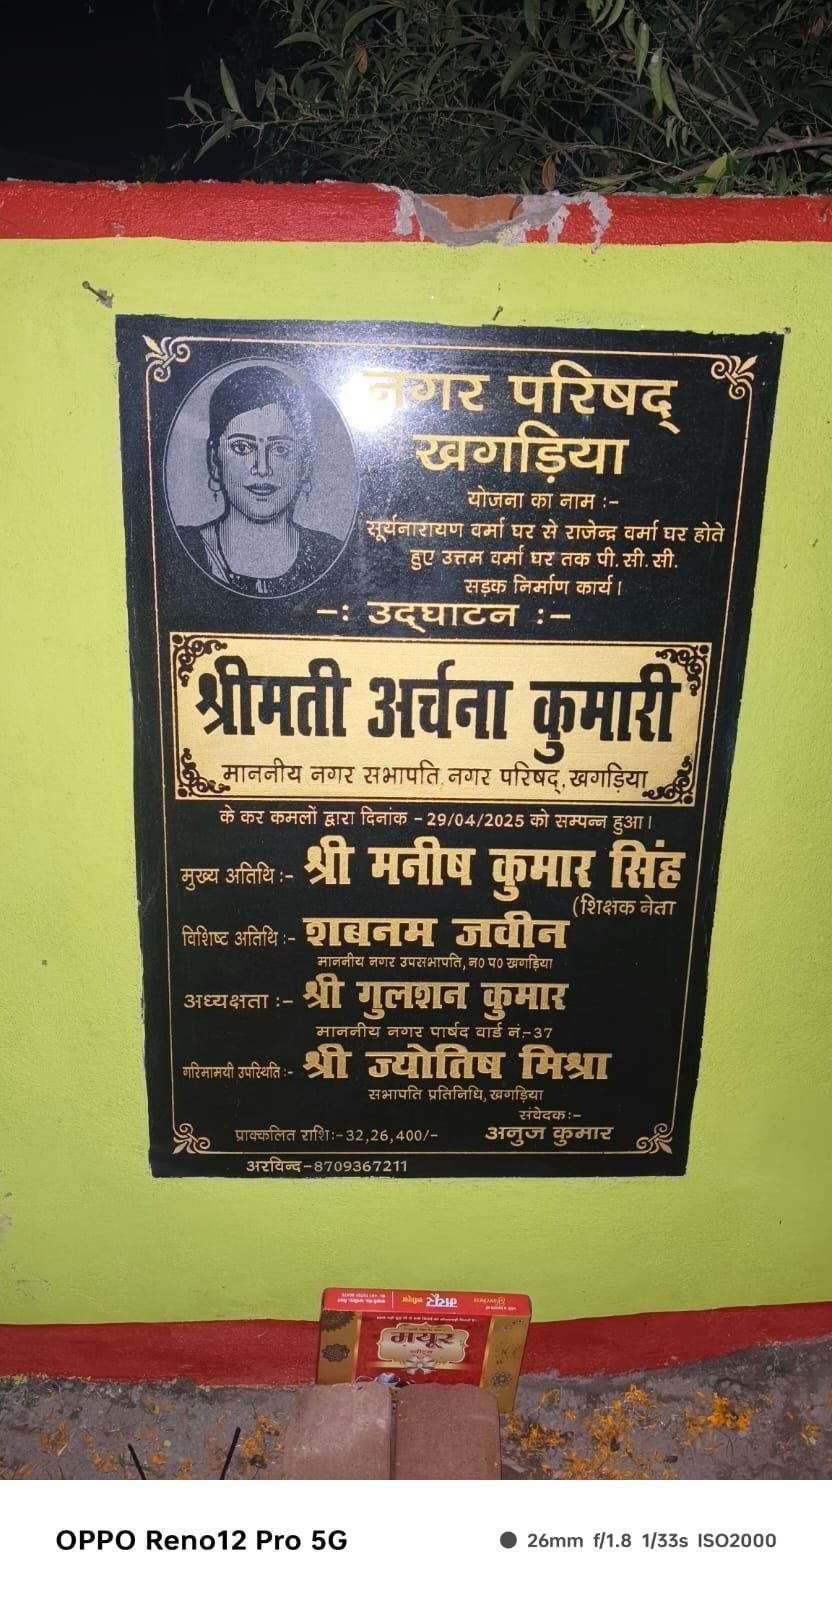 नगर परिषद्
खगड़िया
योजना का नाम :-
सूर्यनारायण वर्मा घर से राजेन्द्र वर्मा घर होते
हुए उत्तम वर्मा घर तक पी.सी.सी.
सड़क निर्माण कार्य।
-: उद्घाटन :-
श्रीमती अर्चना कुमारी
माननीय नगर सभापति, नगर परिषद्, खगड़िया
के कर कमलों द्वारा दिनांक - 29/04/2025 को सम्पन्न हुआ।
मुख्य अतिथि :- श्री मनीष कुमार सिंह
(शिक्षक नेता
विशिष्ट अतिथि :- शबनम जवीन
माननीय नगर उपसभापति, न० प० खगड़िया
अध्यक्षता :- श्री गुलशन कुमार
माननीय नगर पार्षद वार्ड नं.-37
गरिमामयी उपस्थिति :- श्री ज्योतिष मिश्रा
सभापति प्रतिनिधि, खगड़िया
संवेदक:-
प्राक्कलित राशि:-32,26,400/- अनुज कुमार
अरविन्द-8709367211
मयूर
मयूर
OPPO Reno12 Pro 5G
26mm f/1.8 1/33s ISO2000